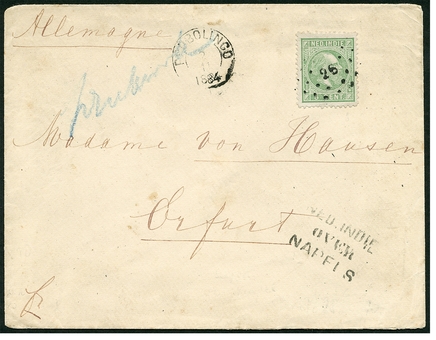 Allemagne
PROBOLINGO
1884
NED-INDIE
26
CENT
Madame von Hausen
Erfurt
NED.INDIE
OVER
NAPELS